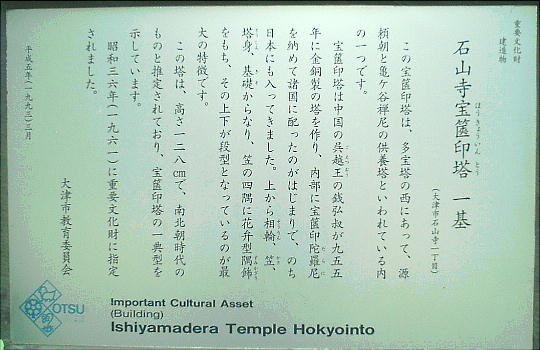 重要文化財
建造物
石山寺宝篋印塔 一基
ほうきょういんとう
(大津市石山寺一丁目)
この宝篋印塔は、多宝塔の西にあって、源
頼朝と亀ケ谷禅尼の供養塔といわれている内
の一つです。
宝篋印塔は中国の呉越王の銭弘俶が九五五
年に金銅製の塔を作り、内部に宝篋印陀羅尼
を納めて諸国に配ったのがはじまりで、のち
日本にも入ってきました。上から相輪、笠、
塔身、基礎からなり、笠の四隅に花弁型隅飾
をもち、その上下が段型となっているのが最
大の特徴です。
この塔は、高さ一二八cmで、南北朝時代の
ものと推定されており、宝篋印塔の一典型を
示しています。
昭和三六年(一九六一)に重要文化財に指定
されました。
平成五年(一九九三)三月
大津市教育委員会
OTSU
Important Cultural Asset
(Building)
Ishiyamadera Temple Hokyointo